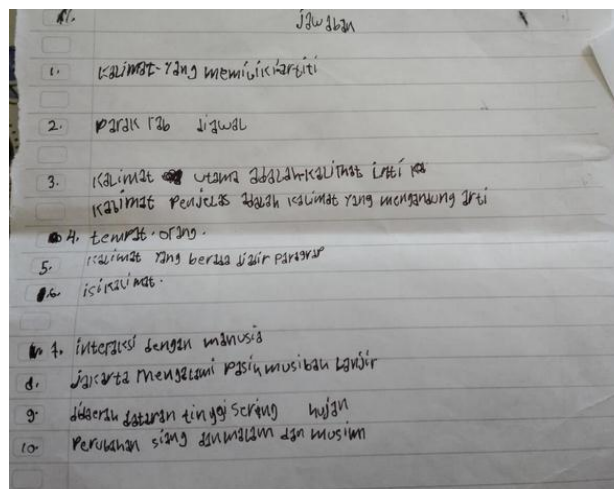 Jawaban
1. Kalimat-Yang memiliki artiti
2. Parak rab diawal
3. Kalimat utama adalah kalimat inti
Kalimat Penjelas adalah kalimat Yang mengandung arti
4. tempat. orang.
5. Kalimat Yang berada diakir Paragraf
6. isi kalimat.
7. interaksi dengan manusia
8. Jakarta mengalami musibah banjir
9. didaerah dataran tinggi sering hujan
10. Perubahan siang dan malam dan musim